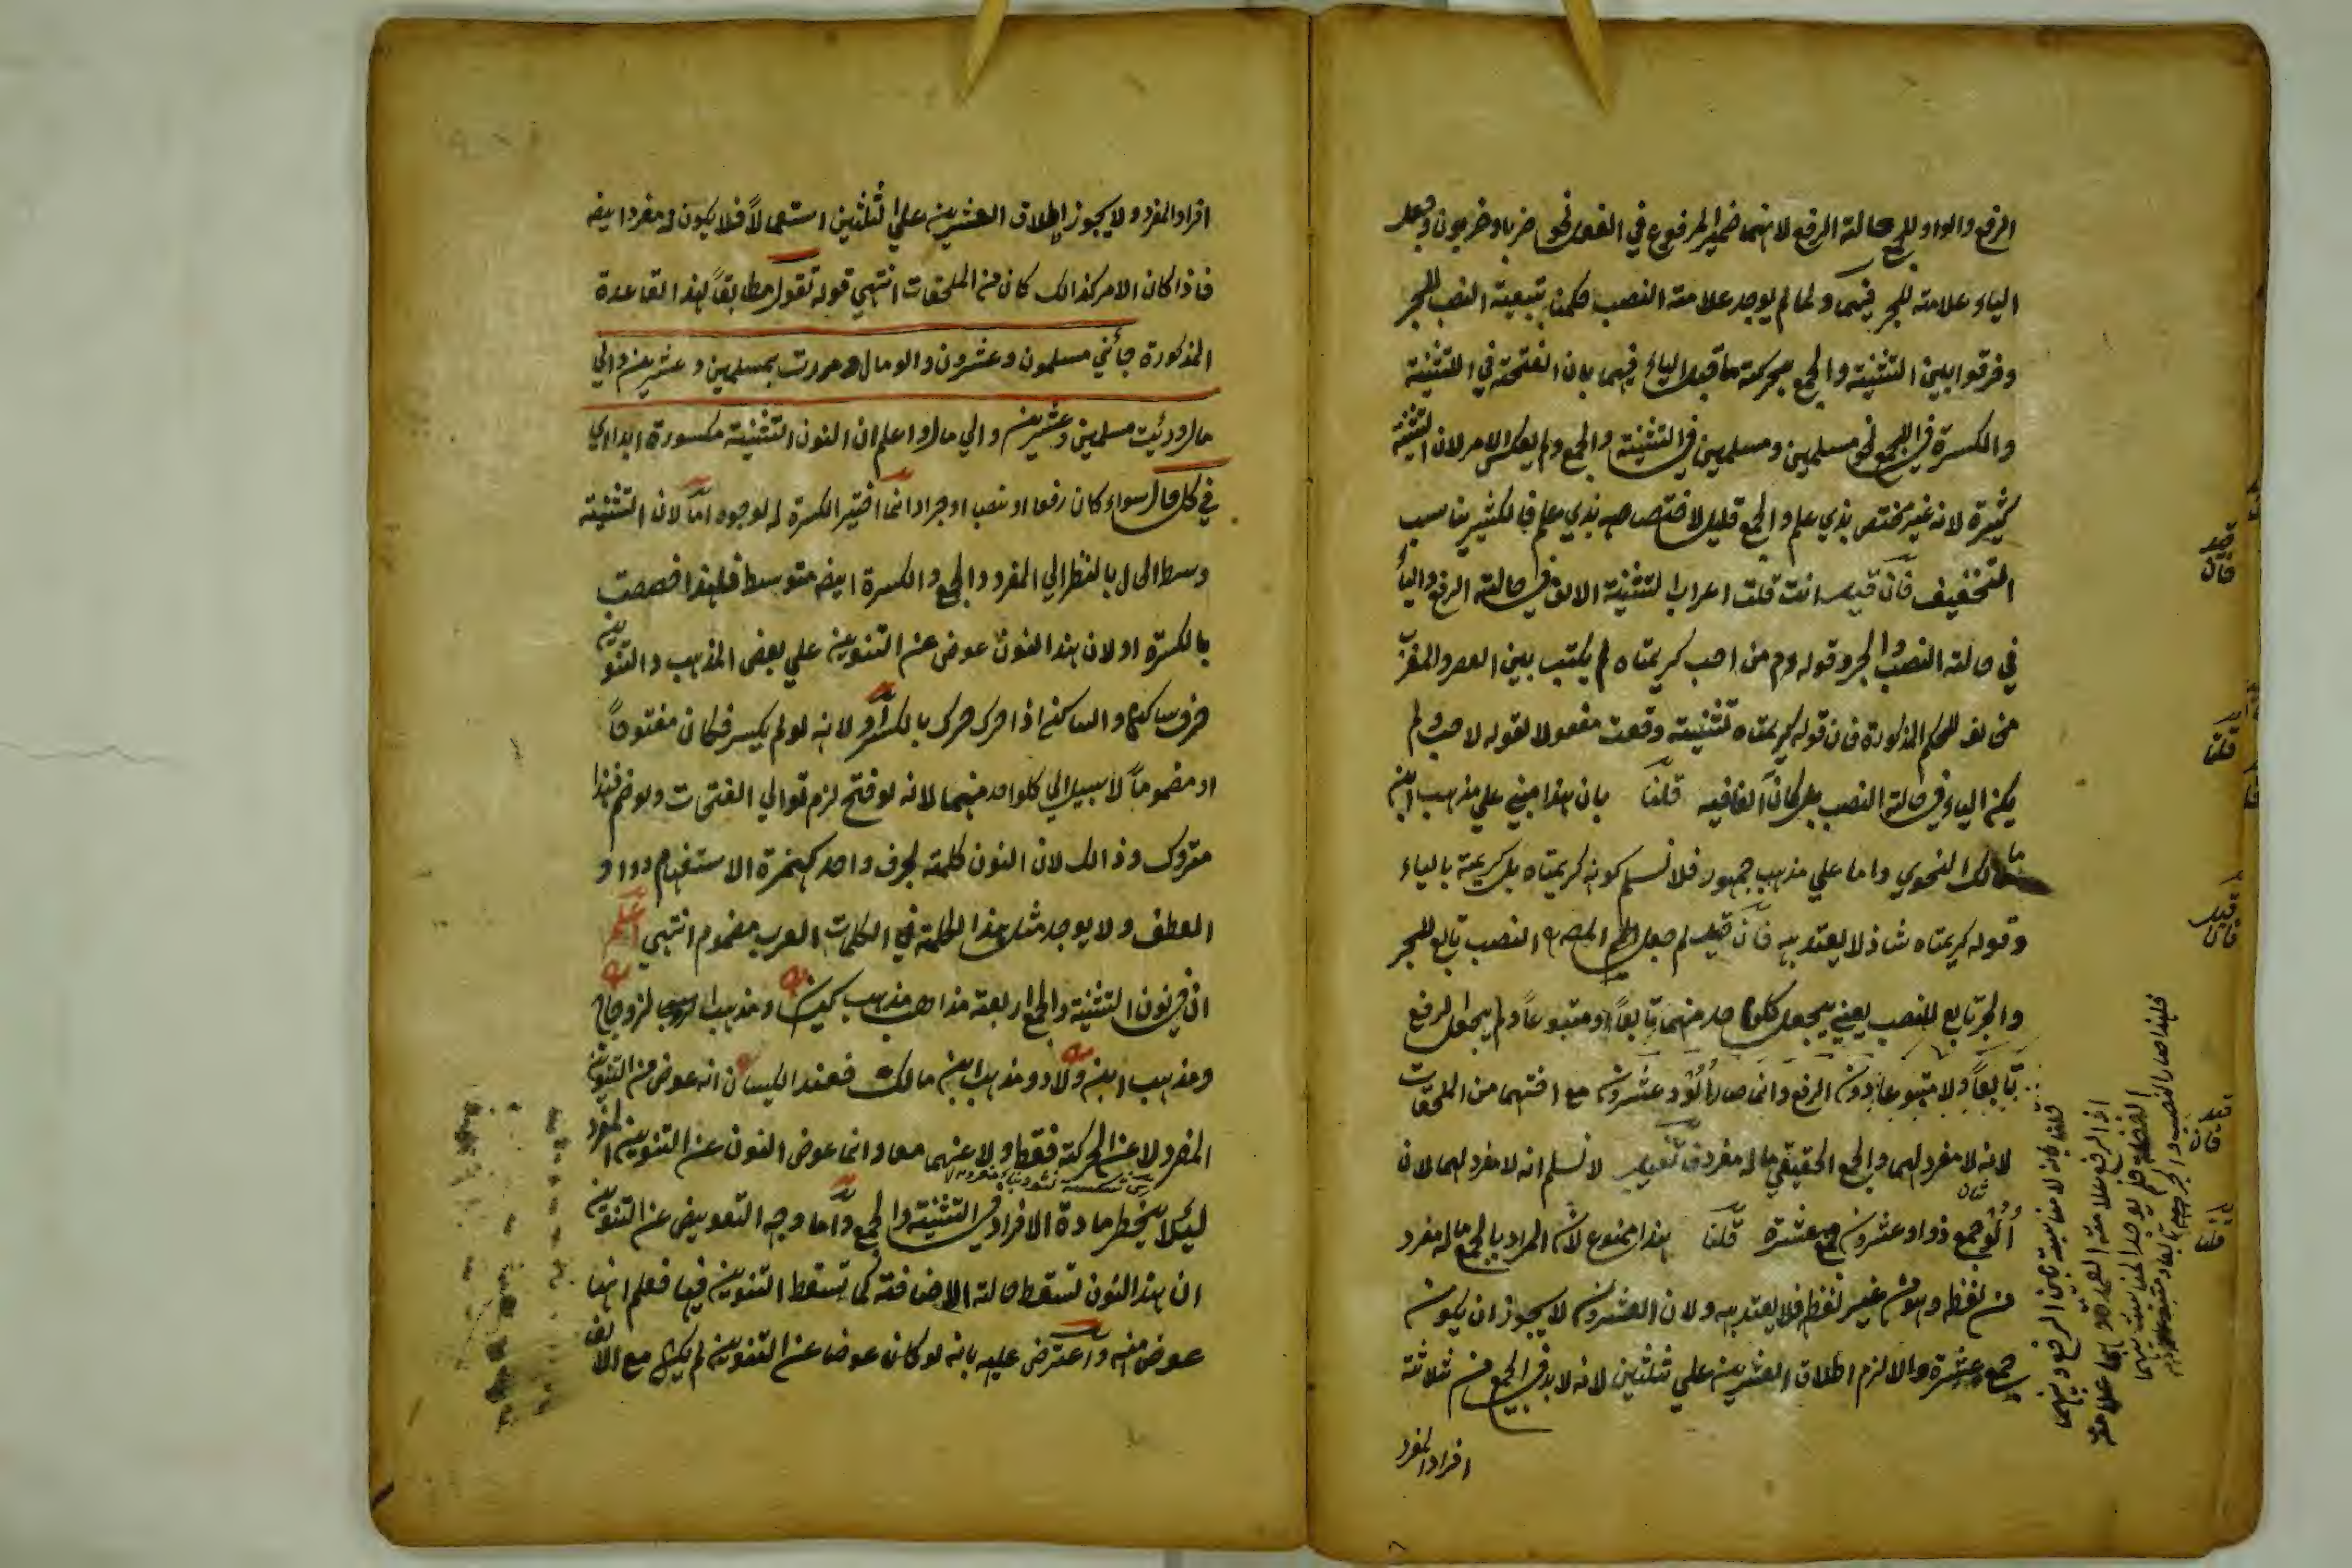 الرفع والواو للجمع حالة الرفع لانهما ضمير المرفوع في الفعل نحو ضربا وضربون وجعل
الياء علامة للجر فيهما ولما لم يوجد علامة النصب حكمنا بتبعية النصب للجر
وفرقوا بين التثنية والجمع بحركة ما قبل الياء فيهما بان الفتحة في التثنية
والكسرة في الجمع نحو مسلمين ومسلمين في التثنية والجمع ولم يعكس الامر لان التثنية
كثيرة لانه غير مختص بذي علم والجمع قليل لاختصاصه بذي علم فالكثير يناسب
التخفيف فان قيل انت قلت اعراب التثنية الالف في حالة الرفع والياء
في حالة النصب والجر وقوله وم من احب كريمتاه لم يكتب بين العصر والمغرب
مخالف للحكم المذكورة فان قوله كريمتاه تثنية وقعت مفعولا لقوله لاحب ولم
يكن الياء في حالة النصب بل كان الف فيه قلنا بان هذا مبني علي مذهب ابن
مالك النحوي واما علي مذهب جمهور فلا نسلم كونه كريمتاه بل كريمتيه بالياء
وقوله كريمتاه شاذ لا يعتد به فان قيل لم جعل النصب تابع للجر
والجر تابع للنصب يعني يجعل كلواحد منهما تابعاً ومتبوعاً ولم يجعل الرفع
تابعاً ولا متبوعاً دون الرفع وانما صار اُلُوْ وعشرون مع اختهما من الملحقات
لانه لا مفرد لهما والجمع الحقيقي ما له مفرد فان قيل لا نسلم انه لا مفرد لهما لان
اُلُوْ جمع ذو وعشرون جمع عشرة قلنا هذا ممنوع لان المراد بالجمع ما له مفرد
من لفظه وهو من غير لفظه فلا يعتد به ولان العشرون لا يجوز ان يكون
جمع عشرة والا لزم اطلاق العشرين علي ثلثين لانه لا بد في الجمع من ثلاثة
افراد المفرد
فان قيل
قلنا
فان قيل
فان قيل
قلنا
قلنا بانه لا مناسبة بين الرفع وبينهما
اذ الرفع علامة العمدة وهما علامة
الفضلة فلم يوجد المناسبة بينهما
فلهذا صار النصب والجر تابعا ومتبوعا
افراد المفرد ولا يجوز اطلاق العشرين علي ثلثين استعمالاً فلا يكون له مفردا ايضه
فاذا كان الامر كذالك كان من الملحقات انتهي قوله تقول مطابقاً لهذا القاعدة
المذكورة جائني مسلمون وعشرون والو مال ومررت بمسلمين وعشرين والي
مال ورئيت مسلمين وعشرين والي مال واعلم ان النون التثنية مكسورة ابدا اي
في كل حال سواء كان رفعا او نصبا او جرا وانما اختير الكسرة له لوجوه اما لان التثنية
وسط الحال بالنظر الي المفرد والجمع والكسرة ايضه متوسط فلهذا خصصت
بالكسرة او لان هذا النون عوض عن التنوين علي بعض المذهب والتنوين
حرف ساكن والساكن اذا حرك حرك بالكسر او لانه لو لم يكسر فكان مفتوحاً
او مضموماً لا سبيل الي كلواحد منهما لانه لو فتح لزم توالي الفتحات ولو ضم فهذا
متروك وذالك لان النون كلمة بحرف واحد كهمزة الاستفهام و واو
العطف ولا يوجد مثل هذا الكلمة في الكلمات العرب مضموم انتهي اعلم
ان في نون التثنية والجمع اربعة مذاهب مذهب كيسان ومذهب الزجاج
ومذهب ابن ولاد ومذهب ابن مالك فعند الكيسان انه عوض من التنوين
المفرد لا عن الحركة فقط ولا عنهما معا وانما عوض النون عن التنوين المفرد
ليلا ينخطر مادة الافراد في التثنية والجمع واما وجه التعويض عن التنوين
ان هذا النون تسقط حالة الاضافة كما تسقط التنوين فيها فعلم انها
عوض منه واعترض عليه بانه لو كان عوضا عن التنوين لم يكن مع الالف